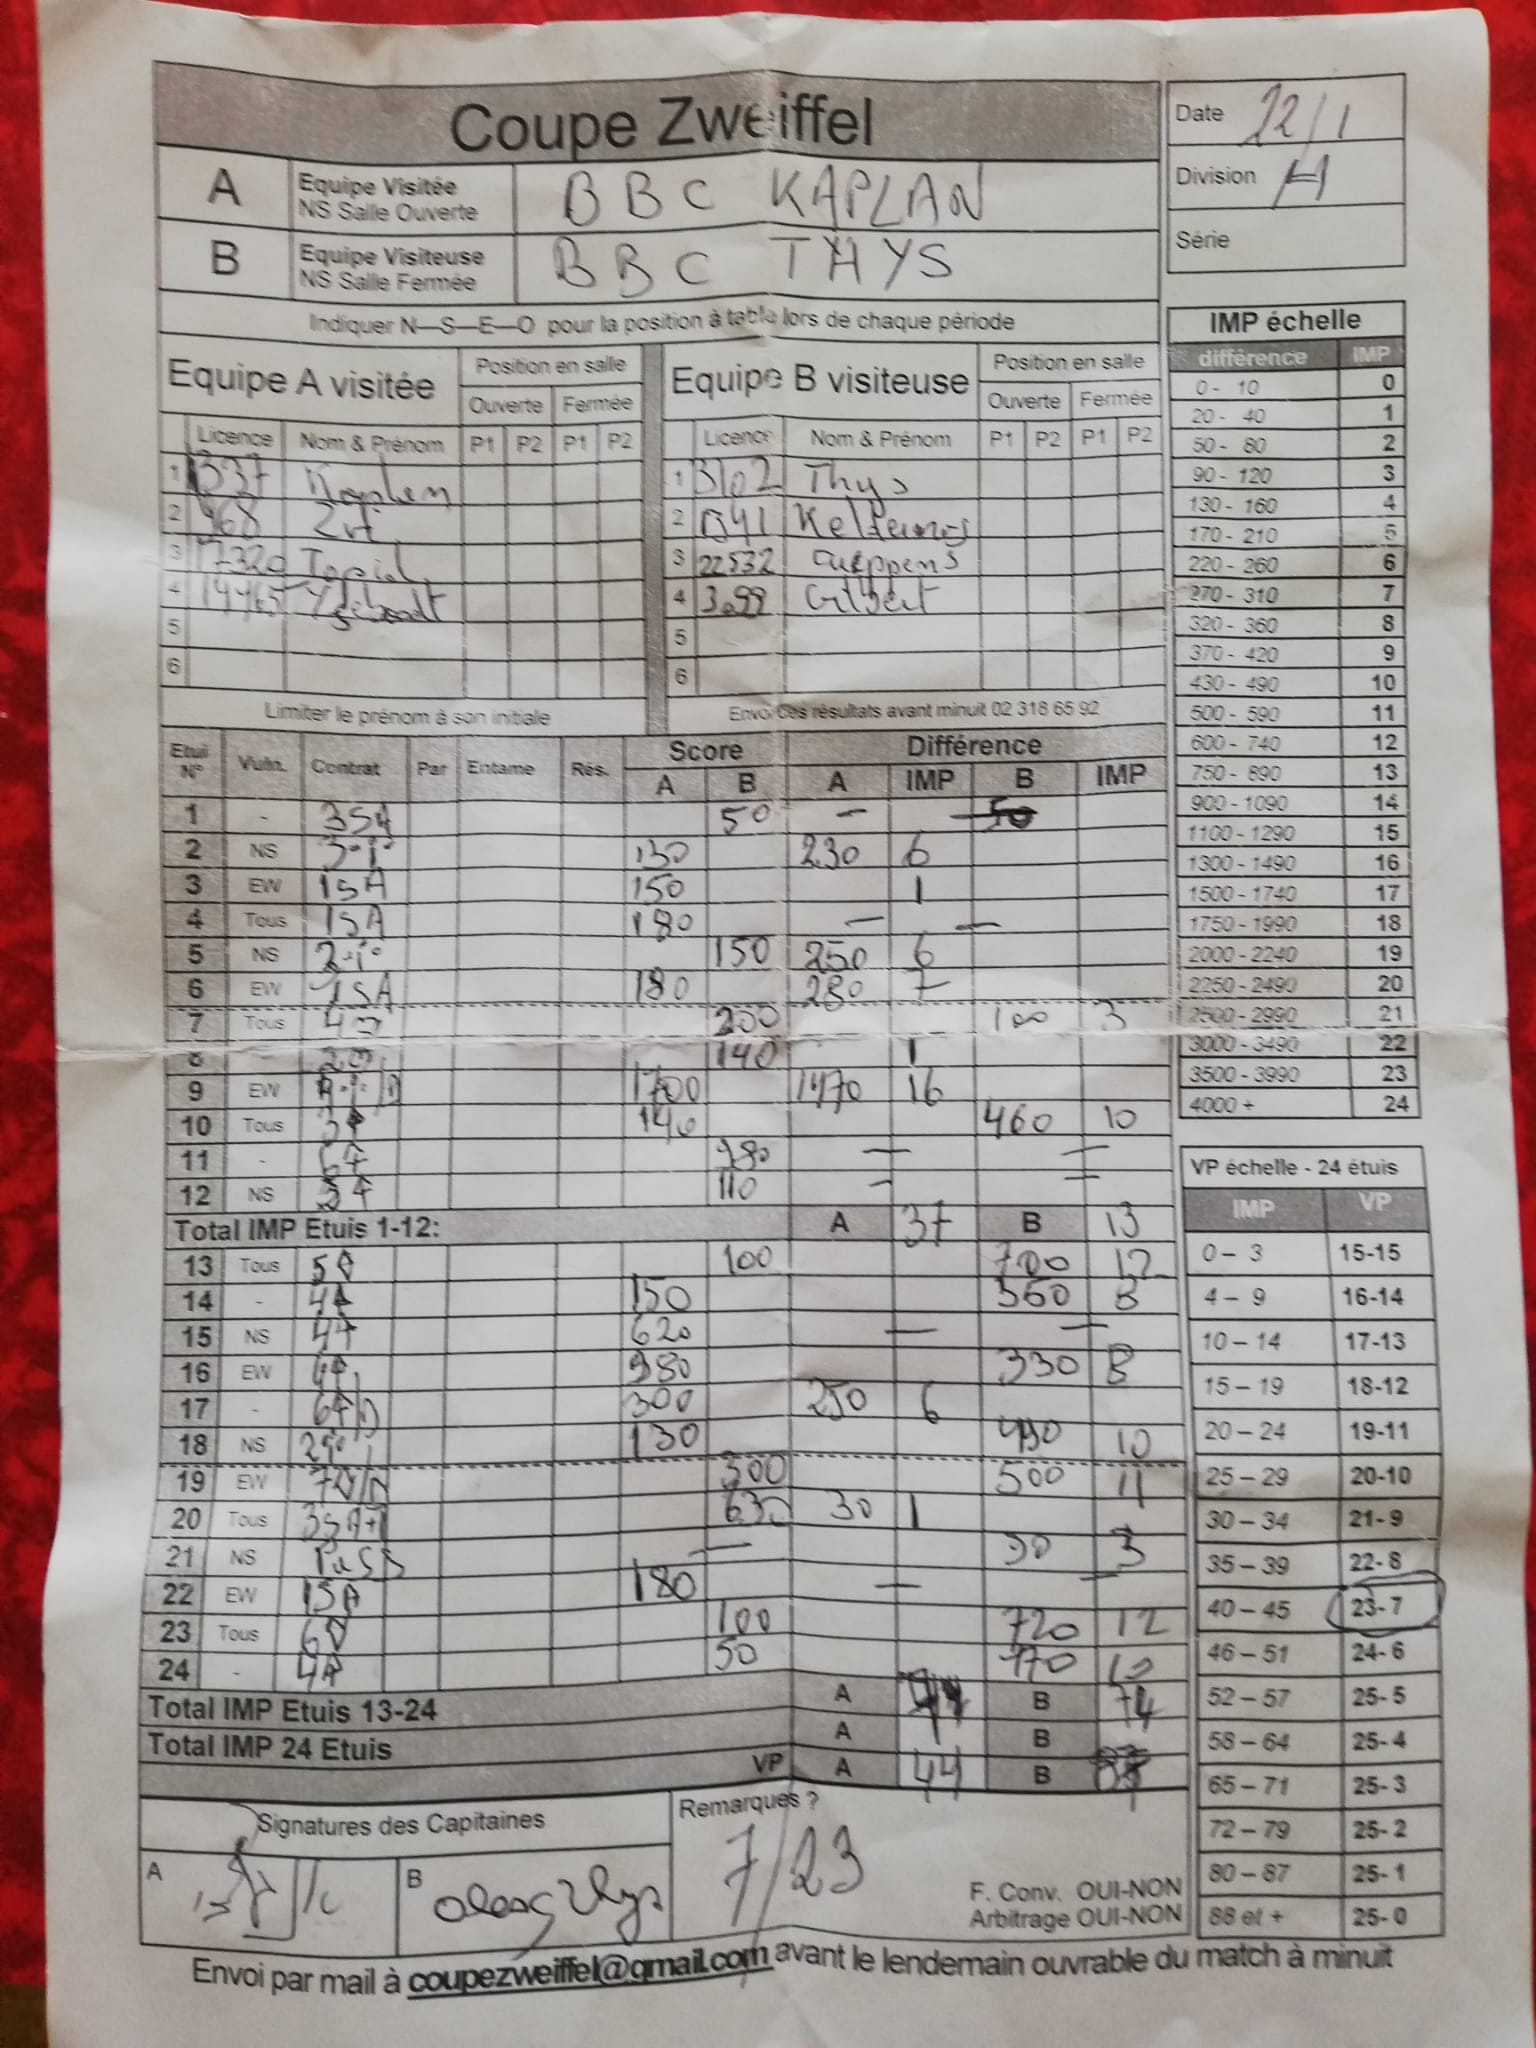 Coupe Zweiffel
Date 22/1
A Equipe Visitée
NS Salle Ouverte
BBC KAPLAN
Division H
B Equipe Visiteuse
NS Salle Fermée
BBC THYS
Série
Indiquer N—S—E—O pour la position à table lors de chaque période
Equipe A visitée Position en salle
Ouverte Fermée
Licence Nom & Prénom P1 P2 P1 P2
1 1337 Kaplan
2 968
3
4
5
6
Equipe B visiteuse Position en salle
Ouverte Fermée
Licence Nom & Prénom P1 P2 P1 P2
1 3102 Thys
2
3 22532 Cueppens
4 3099 Gilbert
5
6
Limiter le prénom à son initiale
Envoi des résultats avant minuit 02 318 65 92
IMP échelle
différence IMP
0 - 10 0
20 - 40 1
50 - 80 2
90 - 120 3
130 - 160 4
170 - 210 5
220 - 260 6
270 - 310 7
320 - 360 8
370 - 420 9
430 - 490 10
500 - 590 11
600 - 740 12
750 - 890 13
900 - 1090 14
1100 - 1290 15
1300 - 1490 16
1500 - 1740 17
1750 - 1990 18
2000 - 2240 19
2250 - 2490 20
2500 - 2990 21
3000 - 3490 22
3500 - 3990 23
4000 + 24
Etui N° Vuln. Contrat Par Entame Rés. Score Différence
A B A IMP B IMP
1 - 3SA 50 — 50
2 NS 130 230 6
3 EW 1SA 150 1
4 Tous 1SA 180 — —
5 NS 150 250 6
6 EW 1SA 180 280 7
7 Tous 200 100 3
8 - 140 1
9 EW 1700 1470 16
10 Tous 140 460 10
11 - 980 — —
12 NS 110 — —
Total IMP Etuis 1-12: A 37 B 13
13 Tous 100 700 12
14 - 150 8
15 NS 620 — —
16 EW 980 330 8
17 - 300 250 6
18 NS 130 10
19 EW 300 500 11
20 Tous 3SA+1 630 30 1
21 NS Pass — 3
22 EW 1SA 180 — —
23 Tous 100 720 12
24 - 50
Total IMP Etuis 13-24 A B 74
Total IMP 24 Etuis A B
VP A 44 B
VP échelle - 24 étuis
IMP VP
0 – 3 15-15
4 – 9 16-14
10 – 14 17-13
15 – 19 18-12
20 – 24 19-11
25 – 29 20-10
30 – 34 21- 9
35 – 39 22- 8
40 – 45 23- 7
46 – 51 24- 6
52 – 57 25- 5
58 – 64 25- 4
65 – 71 25- 3
72 – 79 25- 2
80 – 87 25- 1
88 et + 25- 0
Signatures des Capitaines
A
B
Remarques ?
7/23
F. Conv. OUI-NON
Arbitrage OUI-NON
Envoi par mail à coupezweiffel@gmail.com avant le lendemain ouvrable du match à minuit